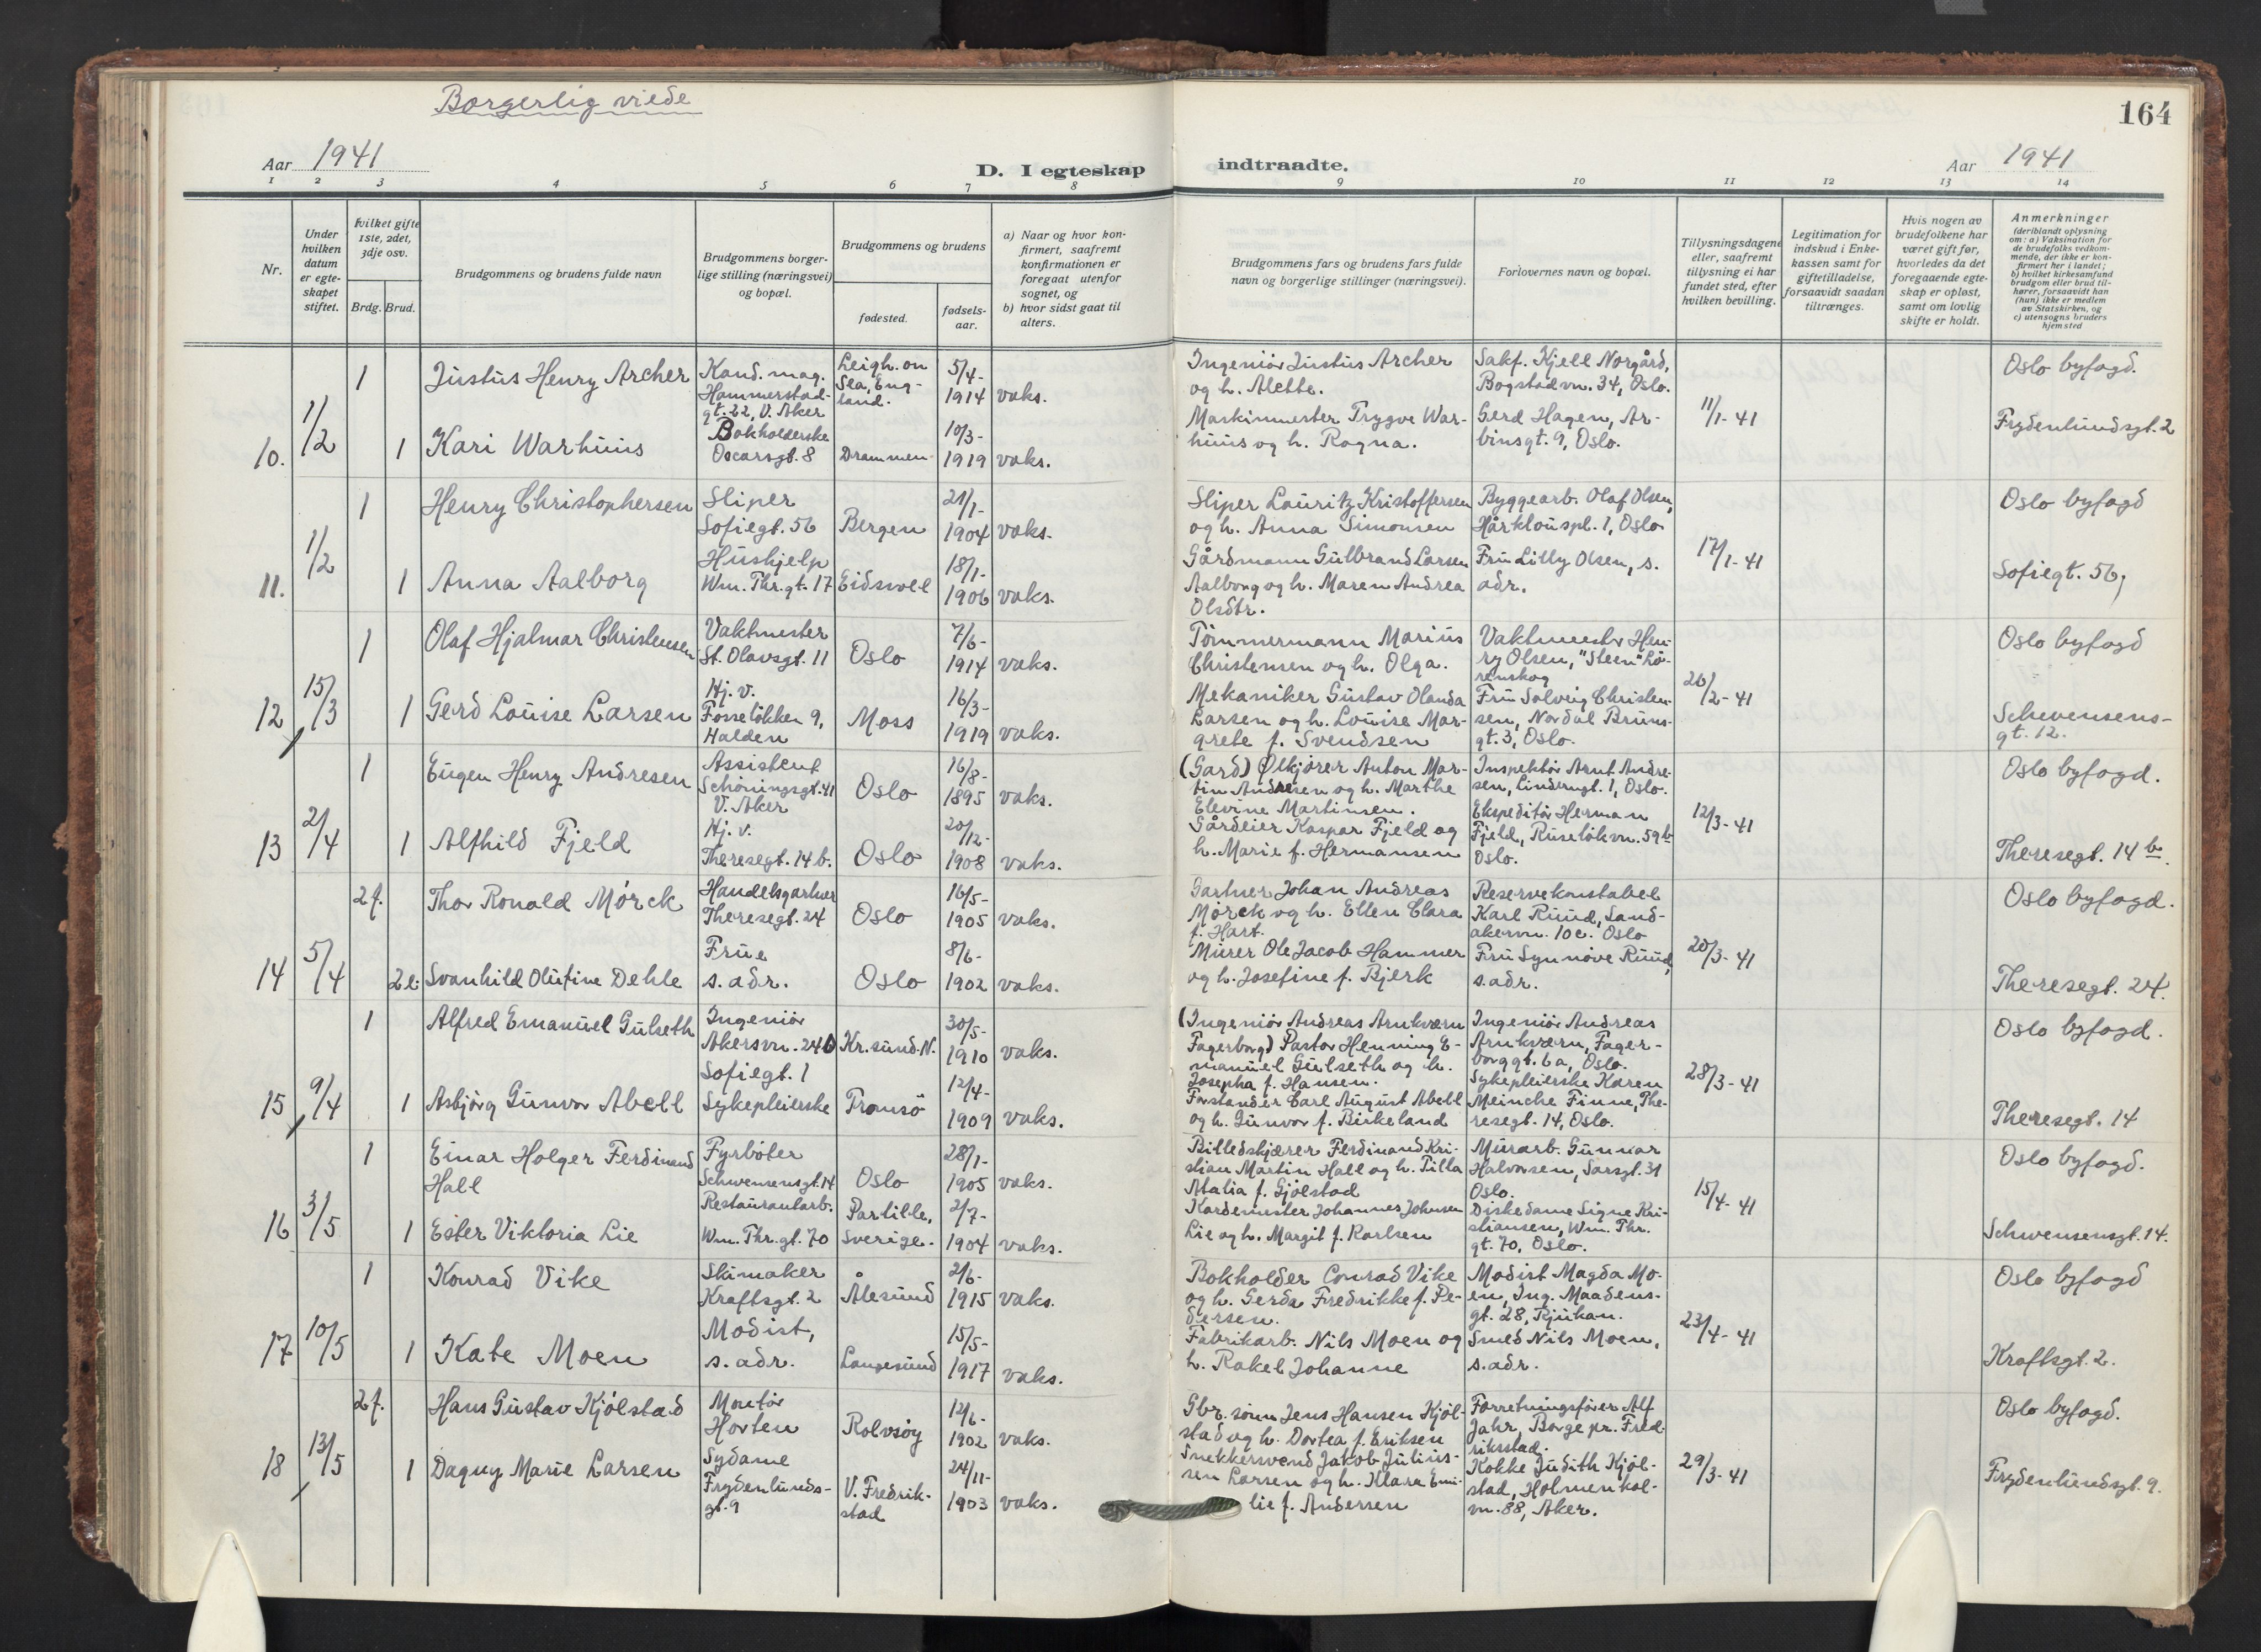 Borgerlig viede
164
Aar 1941
D. I egteskap
indtraadte.
Aar 1941
1 2 3 4 5 6 7 8 9 10 11 12 13 14
Nr.
Under
hvilken
datum
er egte-
skapet
stiftet.
hvilket gifte
1ste, 2det,
3dje osv.
Brdg. Brud.
Brudgommens og brudens fulde navn
Brudgommens borger-
lige stilling (næringsvei)
og bopæl.
Brudgommens og brudens
fødested.
fødsels-
aar.
a) Naar og hvor kon-
firmert, saafremt
konfirmationen er
foregaat utenfor
sognet, og
b) hvor sidst gaat til
alters.
Brudgommens fars og brudens fars fulde
navn og borgerlige stillinger (næringsvei).
Forlovernes navn og bopæl.
Tillysningsdagene
eller, saafremt
tillysning ei har
fundet sted, efter
hvilken bevilling.
Legitimation for
indskud i Enke-
kassen samt for
giftetilladelse,
forsaavidt saadan
tiltrænges.
Hvis nogen av
brudefolkene har
været gift før,
hvorledes da det
foregaaende egte-
skap er opløst,
samt om lovlig
skifte er holdt.
Anmerkninger
(deriblandt oplysning
om: a) Vaksination for
de brudefolks vedkom-
mende, der ikke er kon-
firmert her i landet;
b) hvilket kirkesamfund
brudgom eller brud til-
hører, forsaavidt han
(hun) ikke er medlem
av Statskirken, og
c) utensogns bruders
hjemsted
10. 1/2
1
Justus Henry Archer
Kand. mag.
Hammerstad-
gt. 22, V. Aker
Leigh. on
Sea, Eng-
land.
5/4-
1914
vaks.
Ingeniør Justus Archer
og h. Alette.
Sakf. Kjell Norgård,
Bogstadvn. 34, Oslo.
11/1-41
Oslo byfogd.
1
Kari Warhuus
Bokholderske
Oscarsgt. 8
Drammen
10/3-
1919
vaks.
Maskinmester Trygve War-
huus og h. Ragna.
Gerd Hagen, Ar-
binsgt. 9, Oslo.
Frydenlundsgt. 2
11. 1/2
1
Henry Christophersen
Sliper
Sofiegt. 56
Bergen
21/1-
1904
vaks.
Sliper Lauritz Kristoffersen
og h. Anna Simonsen
Byggearb. Olaf Olsen,
Hårklouspl. 1, Oslo
17/1-41
Oslo byfogd
1
Anna Aalborg
Hushjelp
Wm. Thr. gt. 17
Eidsvoll
18/1-
1906
vaks.
Gårdmann Gulbrand Larsen
Aalborg og h. Maren Andrea
Olsdtr.
Fru Lilly Olsen, s.
adr.
Sofiegt. 56,
12 15/3
1
Olaf Hjalmar Christensen
Vaktmester
St. Olavsgt. 11
Oslo
7/6-
1914
vaks.
Tømmermann Marius
Christensen og h. Olga.
Vaktmester Hen-
ry Olsen, "Steen" Lø-
renskog
26/2-41
Oslo byfogd
1
Gerd Louise Larsen
Hj. v.
Fosseløkken 9,
Halden
Moss
16/3-
1919
vaks.
Mekaniker Gustav Olanda
Larsen og h. Louise Mar-
grete f. Svendsen
Fru Solveig Christen-
sen, Nordal Bruns-
gt. 3, Oslo.
Schwensens-
gt. 12.
13 2/4
1
Eugen Henry Andresen
Assistent
Schøningsgt. 41
V. Aker
Oslo
16/8-
1895
vaks.
(Gard) Ølkjører Anton Mar-
tin Andresen og h. Marthe
Elevine Martinsen.
Inspektør Arnt Andre-
sen, Lindemgt. 1, Oslo.
12/3-41
Oslo byfogd.
1
Alfhild Fjeld
Hj. v.
Theresegt. 14 b.
Oslo
20/12-
1908
vaks.
Gårdeier Kaspar Fjeld og
h. Marie f. Hermansen
Ekspeditør Herman
Fjeld, Ruseløkvn. 59 b
Oslo.
Theresegt. 14 b.
14 5/4
2 f.
Thor Ronald Mørck
Handelsgartner
Theresegt. 24
Oslo
16/5-
1905
vaks.
Gartner Johan Andreas
Mørch og h. Ellen Clara
f. Hart.
Reservekonstabel
Karl Ruud, Sand-
akervn. 10 c. Oslo
20/3-41
Oslo byfogd.
2 e.
Svanhild Olufine Dehle
Frue
s. adr.
Oslo
8/6-
1902
vaks.
Murer Ole Jacob Hammer
og h. Josefine f. Bjerk
Fru Synnøve Ruud,
s. adr.
Theresegt. 24.
15 9/4
1
Alfred Emanuel Gulseth
Ingeniør
Akersvn. 24 b
Kr.sund. N.
30/5-
1910
vaks.
(Ingeniør Andreas Arnkværn
Fagerborg) Pastor Henning E-
manuel Gulseth og h.
Josepha f. Hansen.
Ingeniør Andreas
Arnkværn, Fager-
borggt. 6 a, Oslo.
28/3-41
Oslo byfogd.
1
Asbjørg Gunvor Abell
Sofiegt. 1
Sykepleierske
Tromsø
12/4-
1909
vaks.
Forstander Carl August Abell
og h. Gunvor f. Birkeland
Sykepleierske Karen
Meinche Finne, The-
resegt. 14, Oslo.
Theresegt. 14
16 3/5
1
Einar Holger Ferdinand
Hall
Fyrbøter
Schwensensgt. 14
Oslo
28/1-
1905
vaks.
Billedskjærer Ferdinand Kri-
stian Martin Hall og h. Tilla
Malia f. Gjølstad
Murarb. Gunnar
Halvorsen, Sarsgt. 31
Oslo.
15/4-41
Oslo byfogd.
1
Ester Viktoria Lie
Restaurantarb.
Wm. Thr. gt. 70
Partille,
Sverige.
2/7-
1904
vaks.
Kardemester Johannes Johnsen
Lie og h. Margit f. Karlsen
Diskedame Signe Kri-
stiansen, Wm. Thr.
gt. 70, Oslo.
Schwensensgt. 14.
17 10/5
1
Konrad Vike
Skimaker
Kraftsgt. 2
Ålesund
2/6-
1915
vaks.
Bokholder Conrad Vike
og h. Gerda Fredrikke f. Pe-
dersen.
Modist Magda Mo-
en, Ing. Maadens-
gt. 28, Rjukan.
23/4-41
Oslo byfogd
1
Kate Moen
Modist,
s. adr.
Langesund
15/5-
1917
vaks.
Fabrikarb. Nils Moen og
h. Rakel Johanne
Smed Nils Moen,
s. adr.
Kraftsgt. 2.
18 13/5
2 f.
Hans Gustav Kjølstad
Montør
Horten
Rolvsøy
12/6-
1902
vaks.
Gbr. sønn Jens Hansen Kjøl-
stad og h. Dortea f. Eriksen
Forretningsfører Alf
Jahr, Borge pr. Fred-
riksstad.
29/3-41
Oslo byfogd.
1
Dagny Marie Larsen
Sydame
Frydenlunds-
gt. 9
V. Fredrik-
stad
24/11-
1903
vaks.
Snekkersvend Jakob Julius-
sen Larsen og h. Klara Emi-
lie f. Andersen
Kokke Judith Kjøl-
stad, Holmenkol-
vn. 88, Aker.
Frydenlundsgt. 9.